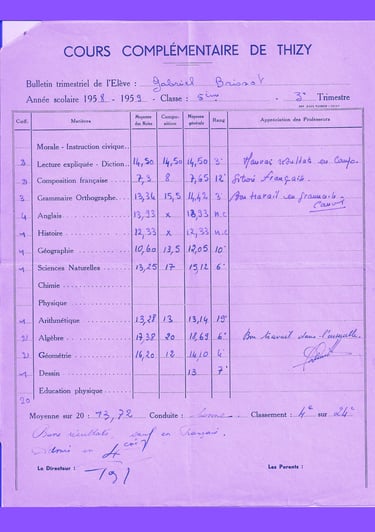 COURS COMPLÉMENTAIRE DE THIZY
Bulletin trimestriel de l'Elève : Gabriel
Année scolaire 1958 - 1959 - Classe : 5ème - 3e Trimestre
Coëf. Matières Moyenne des Notes Composition Moyenne générale Rang Appréciation des Professeurs
Morale - Instruction civique
3 Lecture expliquée - Diction 14,50 14,50 14,50 3e résultats en Compo.
3 Composition française 7,3 8 7,65 12e français.
3 Grammaire Orthographe 13,34 15,5 14,42 3e Bon travail en grammaire
4 Anglais 13,33 x 13,33 n.c
1 Histoire 12,33 x 12,33 n.c
1 Géographie 10,60 13,5 12,05 10e
1 Sciences Naturelles 13,25 17 15,12 6e
Chimie
Physique
1 Arithmétique 13,28 13 13,14 19e
2 Algèbre 17,38 20 18,69 6e Bon travail dans l'ensemble
2 Géométrie 16,20 12 14,10 4e
1 Dessin 13 7e
Education physique
20
Moyenne sur 20 : 13,72 Conduite : bonne Classement : 4e sur 24e
Bons résultats sauf en français.
en 4e
Le Directeur : Les Parents :